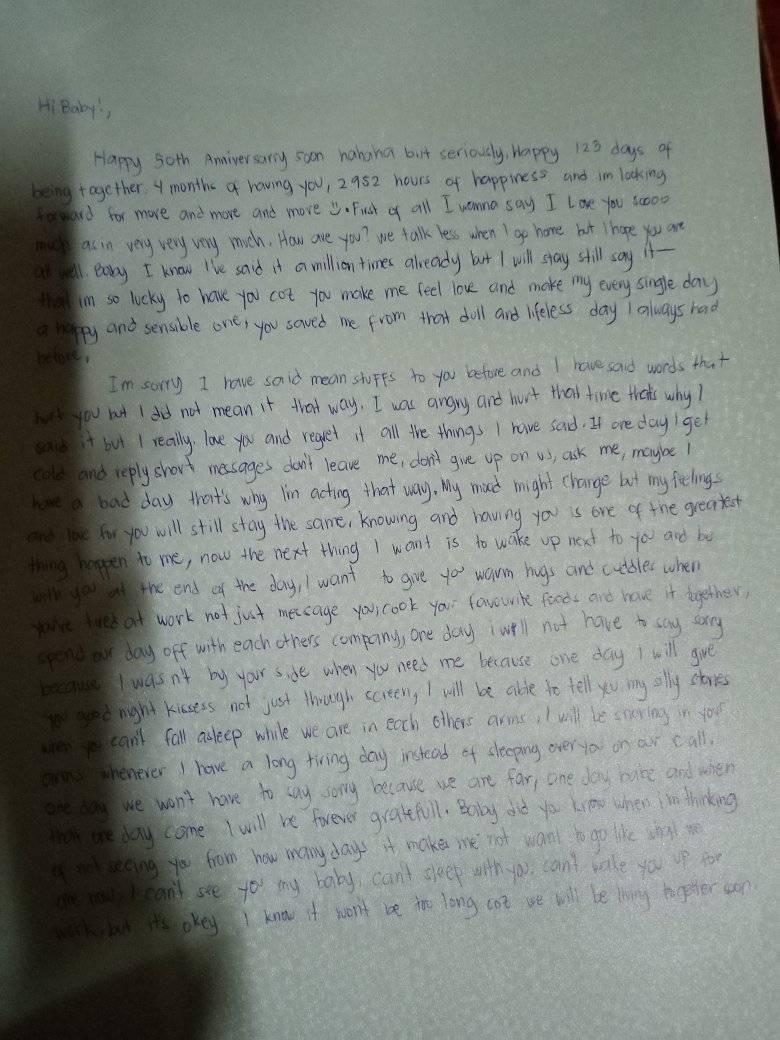 Hi Baby!,
Happy 50th Anniversarry soon hahaha but seriously, Happy 123 days of
being together, 4 months of having you, 2952 hours of happiness and im looking
forward for more and more and more :). First of all I wanna say I Love you soooo
much as in very very very much. How are you? we talk less when I go home but I hope you are
all well. Baby I know I've said it a million times already but I will stay still say it—
that im so lucky to have you coz you make me feel love and make my every single day
a happy and sensible one, you saved me from that dull and lifeless day I always had
before.
I'm sorry I have said mean stuffs to you before and I have said words that
hurt you but I did not mean it that way. I was angry and hurt that time that's why I
said it but I really love you and regret it all the things I have said. If one day I get
cold and reply short messages don't leave me, don't give up on us, ask me, maybe I
have a bad day that's why I'm acting that way. My mood might change but my feelings
and love for you will still stay the same. knowing and having you is one of the greatest
thing happen to me, now the next thing I want is to wake up next to you and be
with you at the end of the day, I want to give you warm hugs and cuddles when
you're tired at work not just message you, cook your favourite foods and have it together,
spend our day off with each others company, one day i will not have to say sorry
because I wasn't by your side when you need me because one day i will give
you good night kissess not just through screen, I will be able to tell you my silly stories
when you can't fall asleep while we are in each others arms, I will be snoring in your
arms whenever I have a long tiring day instead of sleeping over you on our call.
one day we won't have to say sorry because we are far, one day babe and when
that one day come I will be forever gratefull. Baby did you know when i'm thinking
of not seeing you from how many days it makes me not want to go like what we
are now, I can't see you my baby, can't sleep with you, can't wake you up for
work, but it's okey I know it won't be too long coz we will be living together soon.